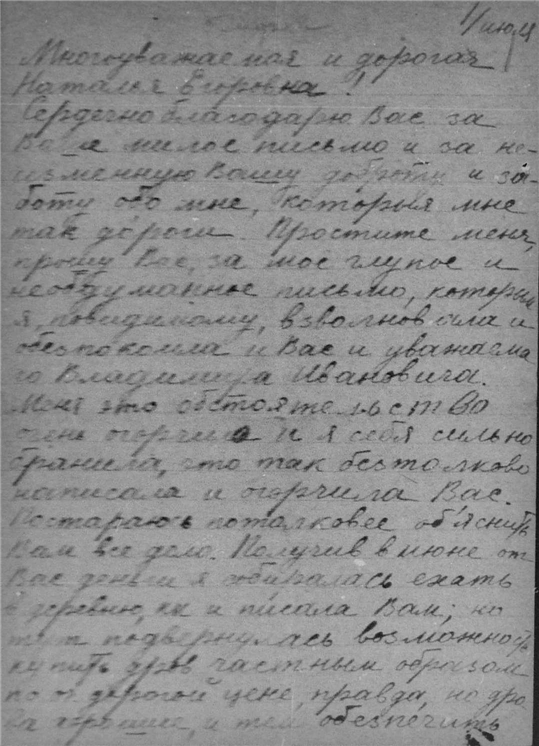 1/июля
Многоуважаемая и дорогая
Наталья Егоровна!
Сердечно благодарю Вас за
Ваше милое письмо и за не-
изменную Вашу доброту и за-
боту обо мне, которыя мне
так дороги. Простите меня,
прошу Вас, за мое глупое и
необдуманное письмо, которым
я, повидимому, взволновала и
обезпокоила и Вас и уважаема
го Владимира Ивановича.
Меня это обстоятельство
очень огорчило и я себя сильно
бранила, что так безтолково
написала и огорчила Вас.
Постараюсь потолковее об'яснить
Вам все дело. Получив в июне от
Вас деньги я собиралась ехать
в деревню, как и писала Вам; но
тут подвернулась возможность
купить дров частным образом
по дорогой цене, правда, но дро
ва хорошие, и тем обезпечить